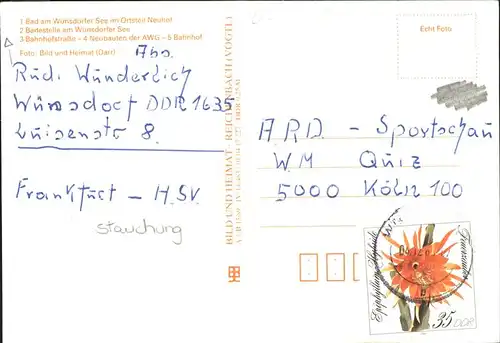 1 Bad am Wünsdorfer See im Ortsteil Neuhof
2 Badestelle am Wünsdorfer See
3 Bahnhofstraße – 4 Neubauten der AWG – 5 Bahnhof
Foto: Bild und Heimat (Darr)
Abs.
Rüdi Wünderlich
Wünsdorf DDR 1635
Luisenstr 8.
Frankfurt – H.SV.
Stauchung
BILD UND HEIMAT · REICHENBACH (VOGTL)
Echt Foto
A.R.D. – Sportschau
WM Quiz
5000 Köln 100
Epiphyllum-Hybride
35 DDR